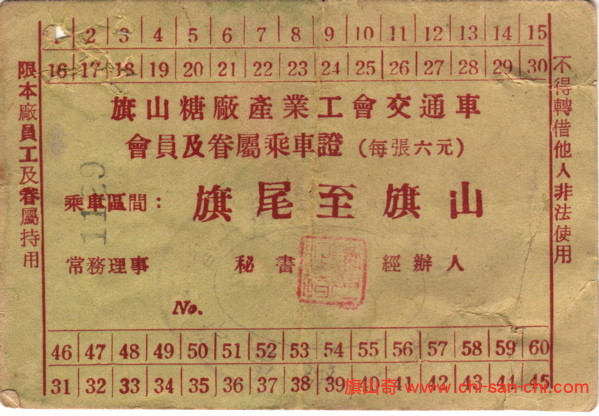 1 2 3 4 5 6 7 8 9 10 11 12 13 14 15
16 17 18 19 20 21 22 23 24 25 26 27 28 29 30
限本廠員工及眷屬持用
旗山糖廠產業工會交通車
會員及眷屬乘車證（每張六元）
乘車區間： 旗尾至旗山
常務理事 秘書 經辦人
No.
不得轉借他人非法使用
46 47 48 49 50 51 52 53 54 55 56 57 58 59 60
31 32 33 34 35 36 37 38 39 40 41 42 43 44 45
旗山奇 www.chi-san-chi.com